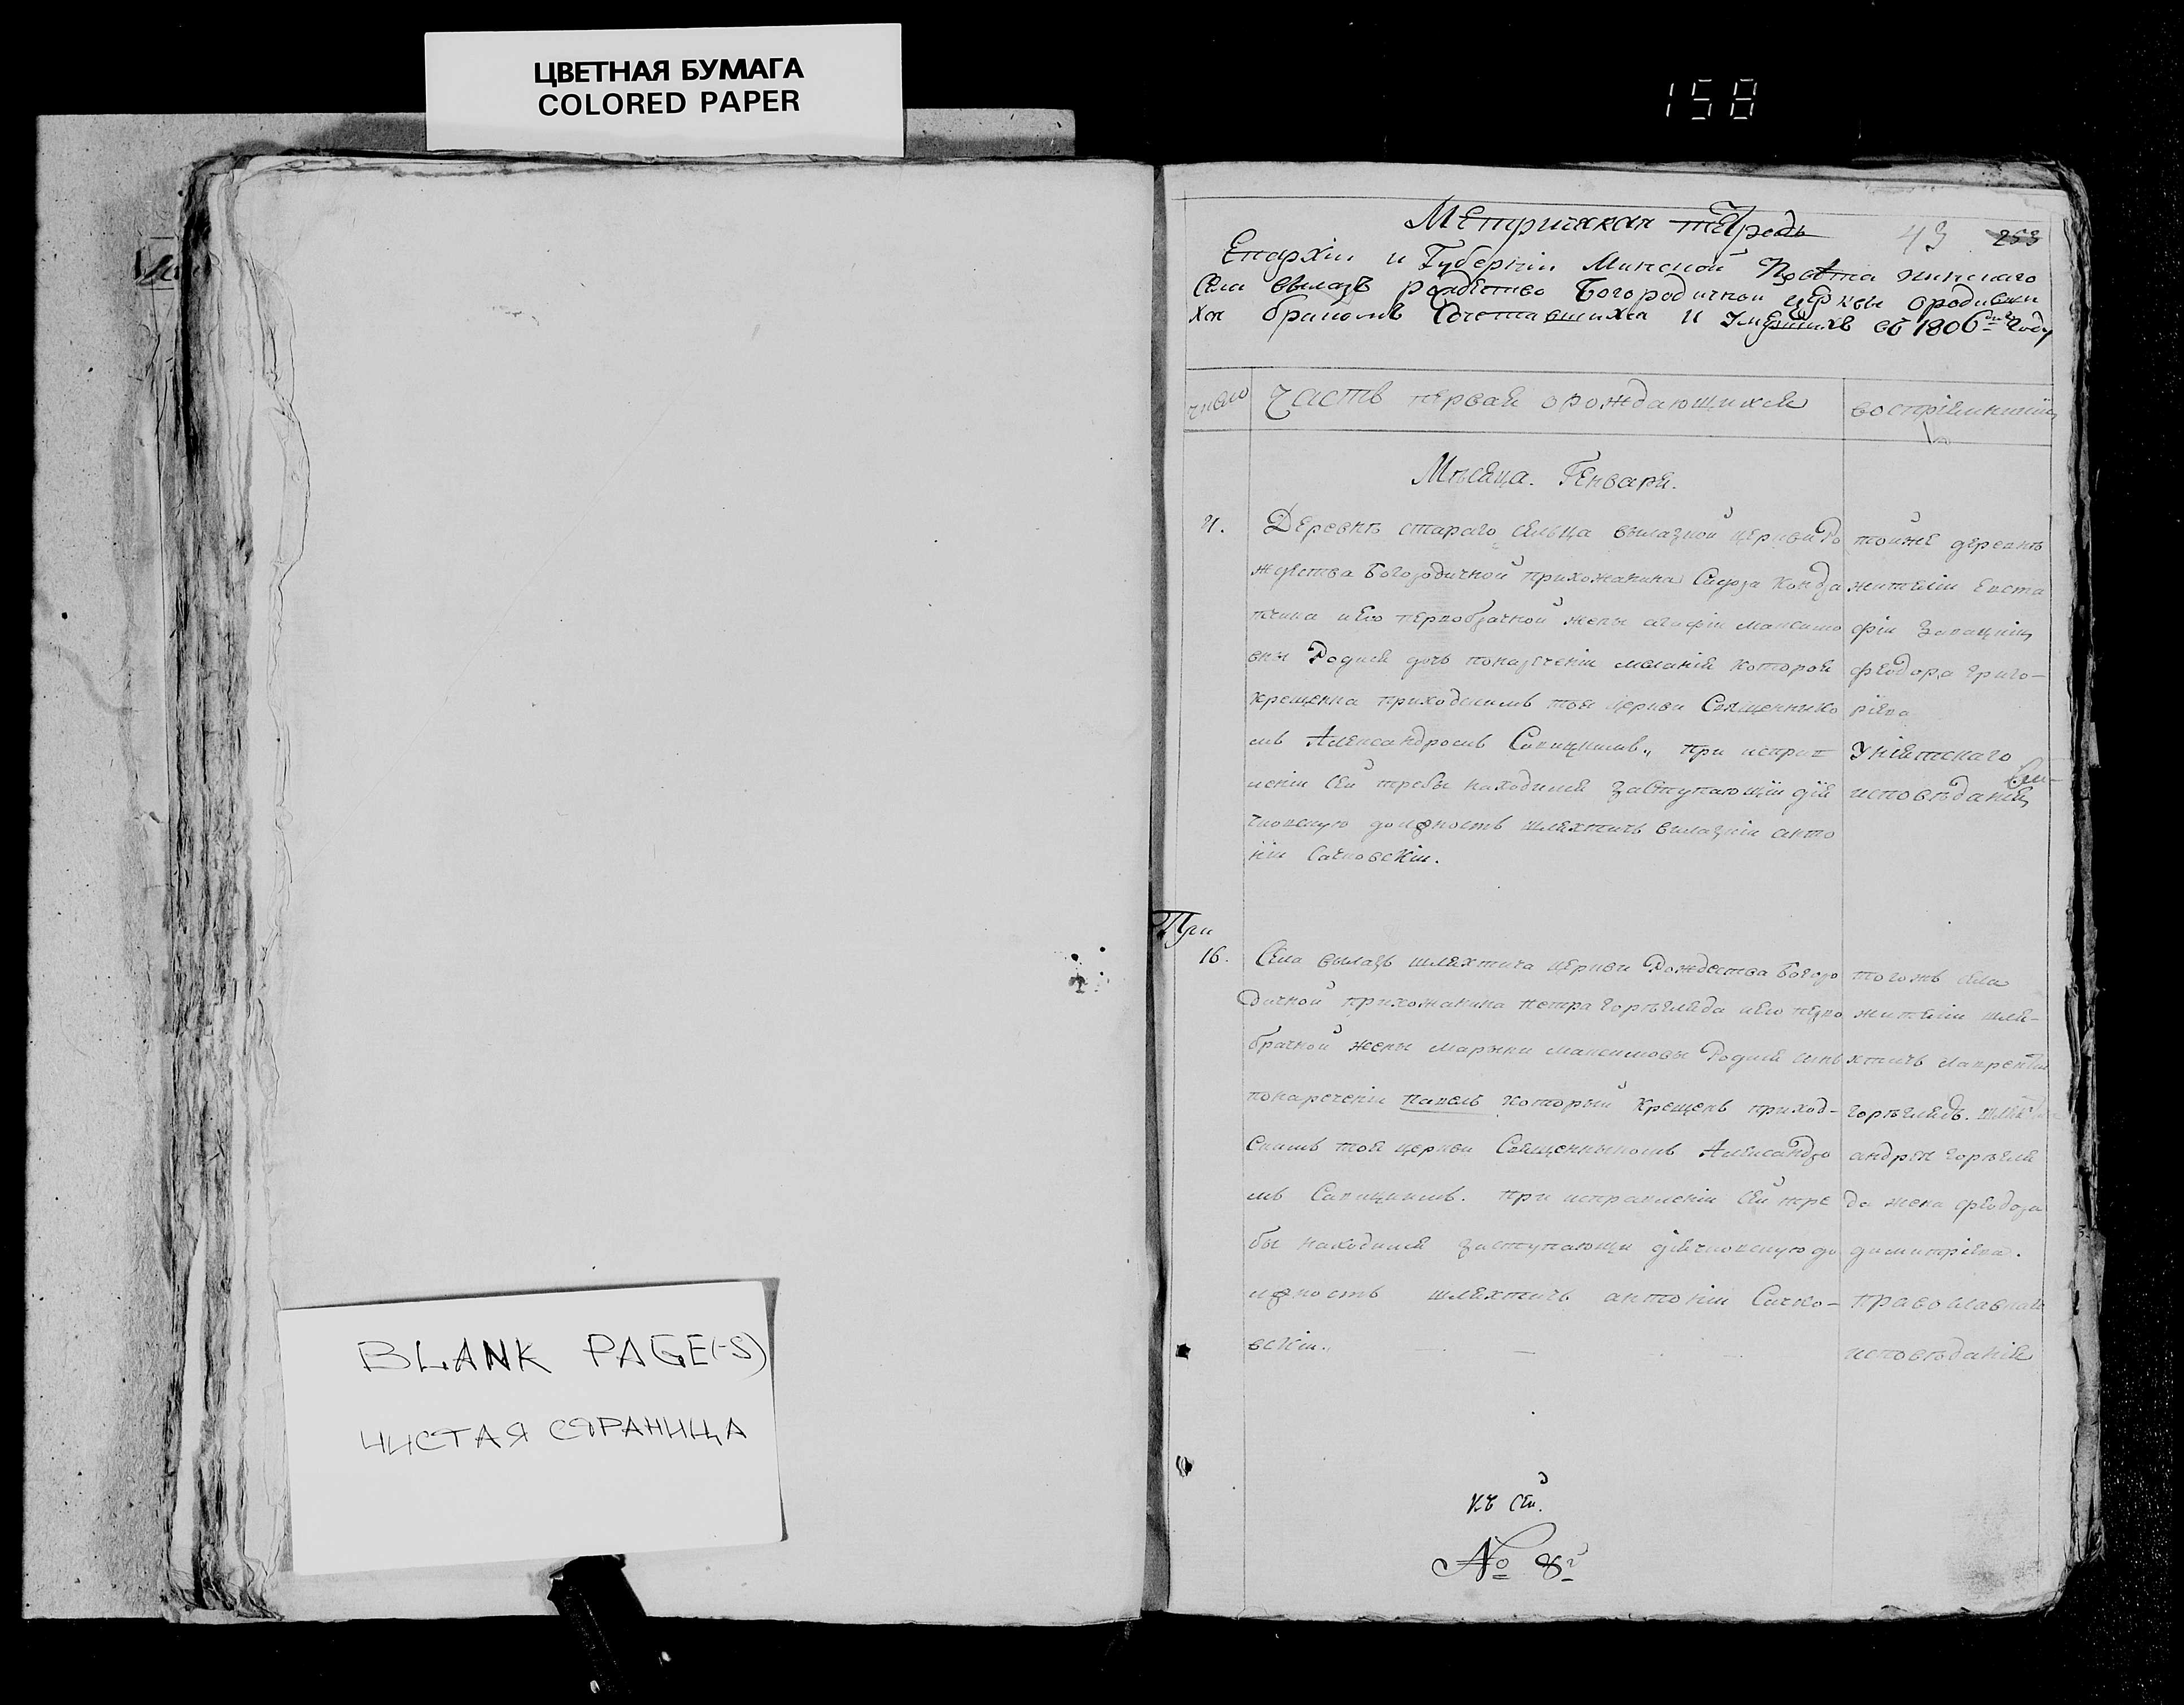 ЦВЕТНАЯ БУМАГА
COLORED PAPER
158
BLANK PAGE(-S)
ЧИСТАЯ СТРАНИЦА
Метрическая тетрадь
43 253
Епархіи и Губерніи Минской Повѣта пинскаго
Села вылазъ рождество Богородичной церкви ородивши
хся бракомъ Сочетавшихся и Умершихъ съ 1806 году
число
часть первая орождающихся
воспріемники
Мѣсяца. Генваря.
Деревнѣ стараго сельца вылазкой церкви Ро
ждества Богородичной прихожанина Сидора Конд
его первобрачной жены агафіи максимо
вны Родися дочь понареченіи меланія которая
крещенна приходскимъ тоя церкви Священнико
мъ Александромъ Савицкимъ, при исправ=
леніи сей требы находился заступающій дія
чковскую должность шляхтичъ вылазкій анто
ній Сачковскій.
тойже деревнѣ
жители Евста
фій
феодора григо-
ріева
Уніятскаго
исповѣданія
При
16.
Села вылазъ шляхтича церкви Рождества Богоро
дичной прихожанина петра горегляда иего перво
брачной жены марыны максимовы Родися сынъ
понареченіи павелъ который крещенъ приход-
скимъ тоя церкви Священныкомъ Александро
мъ Савицкимъ. при исправленіи сей тре
бы находился заступающи діячковскую до
лжность шляхтичъ антоній Сачко-
вскій.
тогожъ села
жители шля-
хтичъ лаврентій
горегляд. шлях
андрея горегля
да жена феодора
димитріева.
православнаго
исповѣданія
къ сей.
№ 8